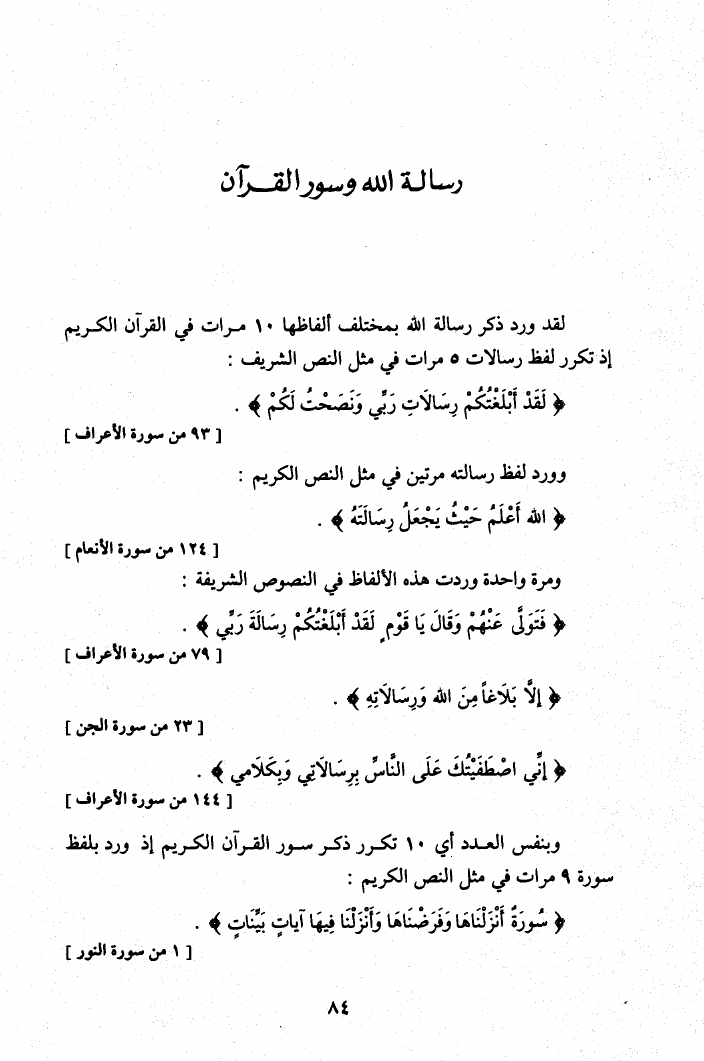 رسالة الله وسور القرآن
لقد ورد ذكر رسالة الله بمختلف ألفاظها ١٠ مرات في القرآن الكريم
إذ تكرر لفظ رسالات ٥ مرات في مثل النص الشريف :
﴿ لَقَدْ أَبْلَغْتُكُمْ رِسَالَاتِ رَبِّي وَنَصَحْتُ لَكُمْ ﴾ .
[ ٩٣ من سورة الأعراف ]
وورد لفظ رسالته مرتين في مثل النص الكريم :
﴿ الله أَعْلَمُ حَيْثُ يَجْعَلُ رِسَالَتَهُ ﴾ .
[ ١٢٤ من سورة الأنعام ]
ومرة واحدة وردت هذه الألفاظ في النصوص الشريفة :
﴿ فَتَوَلَّى عَنْهُمْ وَقَالَ يَا قَوْمِ لَقَدْ أَبْلَغْتُكُمْ رِسَالَةَ رَبِّي ﴾ .
[ ٧٩ من سورة الأعراف ]
﴿ إلَّا بَلَاغاً مِنَ الله وَرِسَالَاتِهِ ﴾ .
[ ٢٣ من سورة الجن ]
﴿ إنِّي اصْطَفَيْتُكَ عَلَى النَّاسِ بِرِسَالَاتِي وَبِكَلَامي ﴾ .
[ ١٤٤ من سورة الأعراف ]
وبنفس العدد أي ١٠ تكرر ذكر سور القرآن الكريم إذ ورد بلفظ
سورة ٩ مرات في مثل النص الكريم :
﴿ سُورَةٌ أَنْزَلْنَاهَا وَفَرَضْنَاهَا وَأَنْزَلْنَا فِيهَا آيَاتٍ بَيِّنَاتٍ ﴾ .
[ ١ من سورة النور ]
٨٤